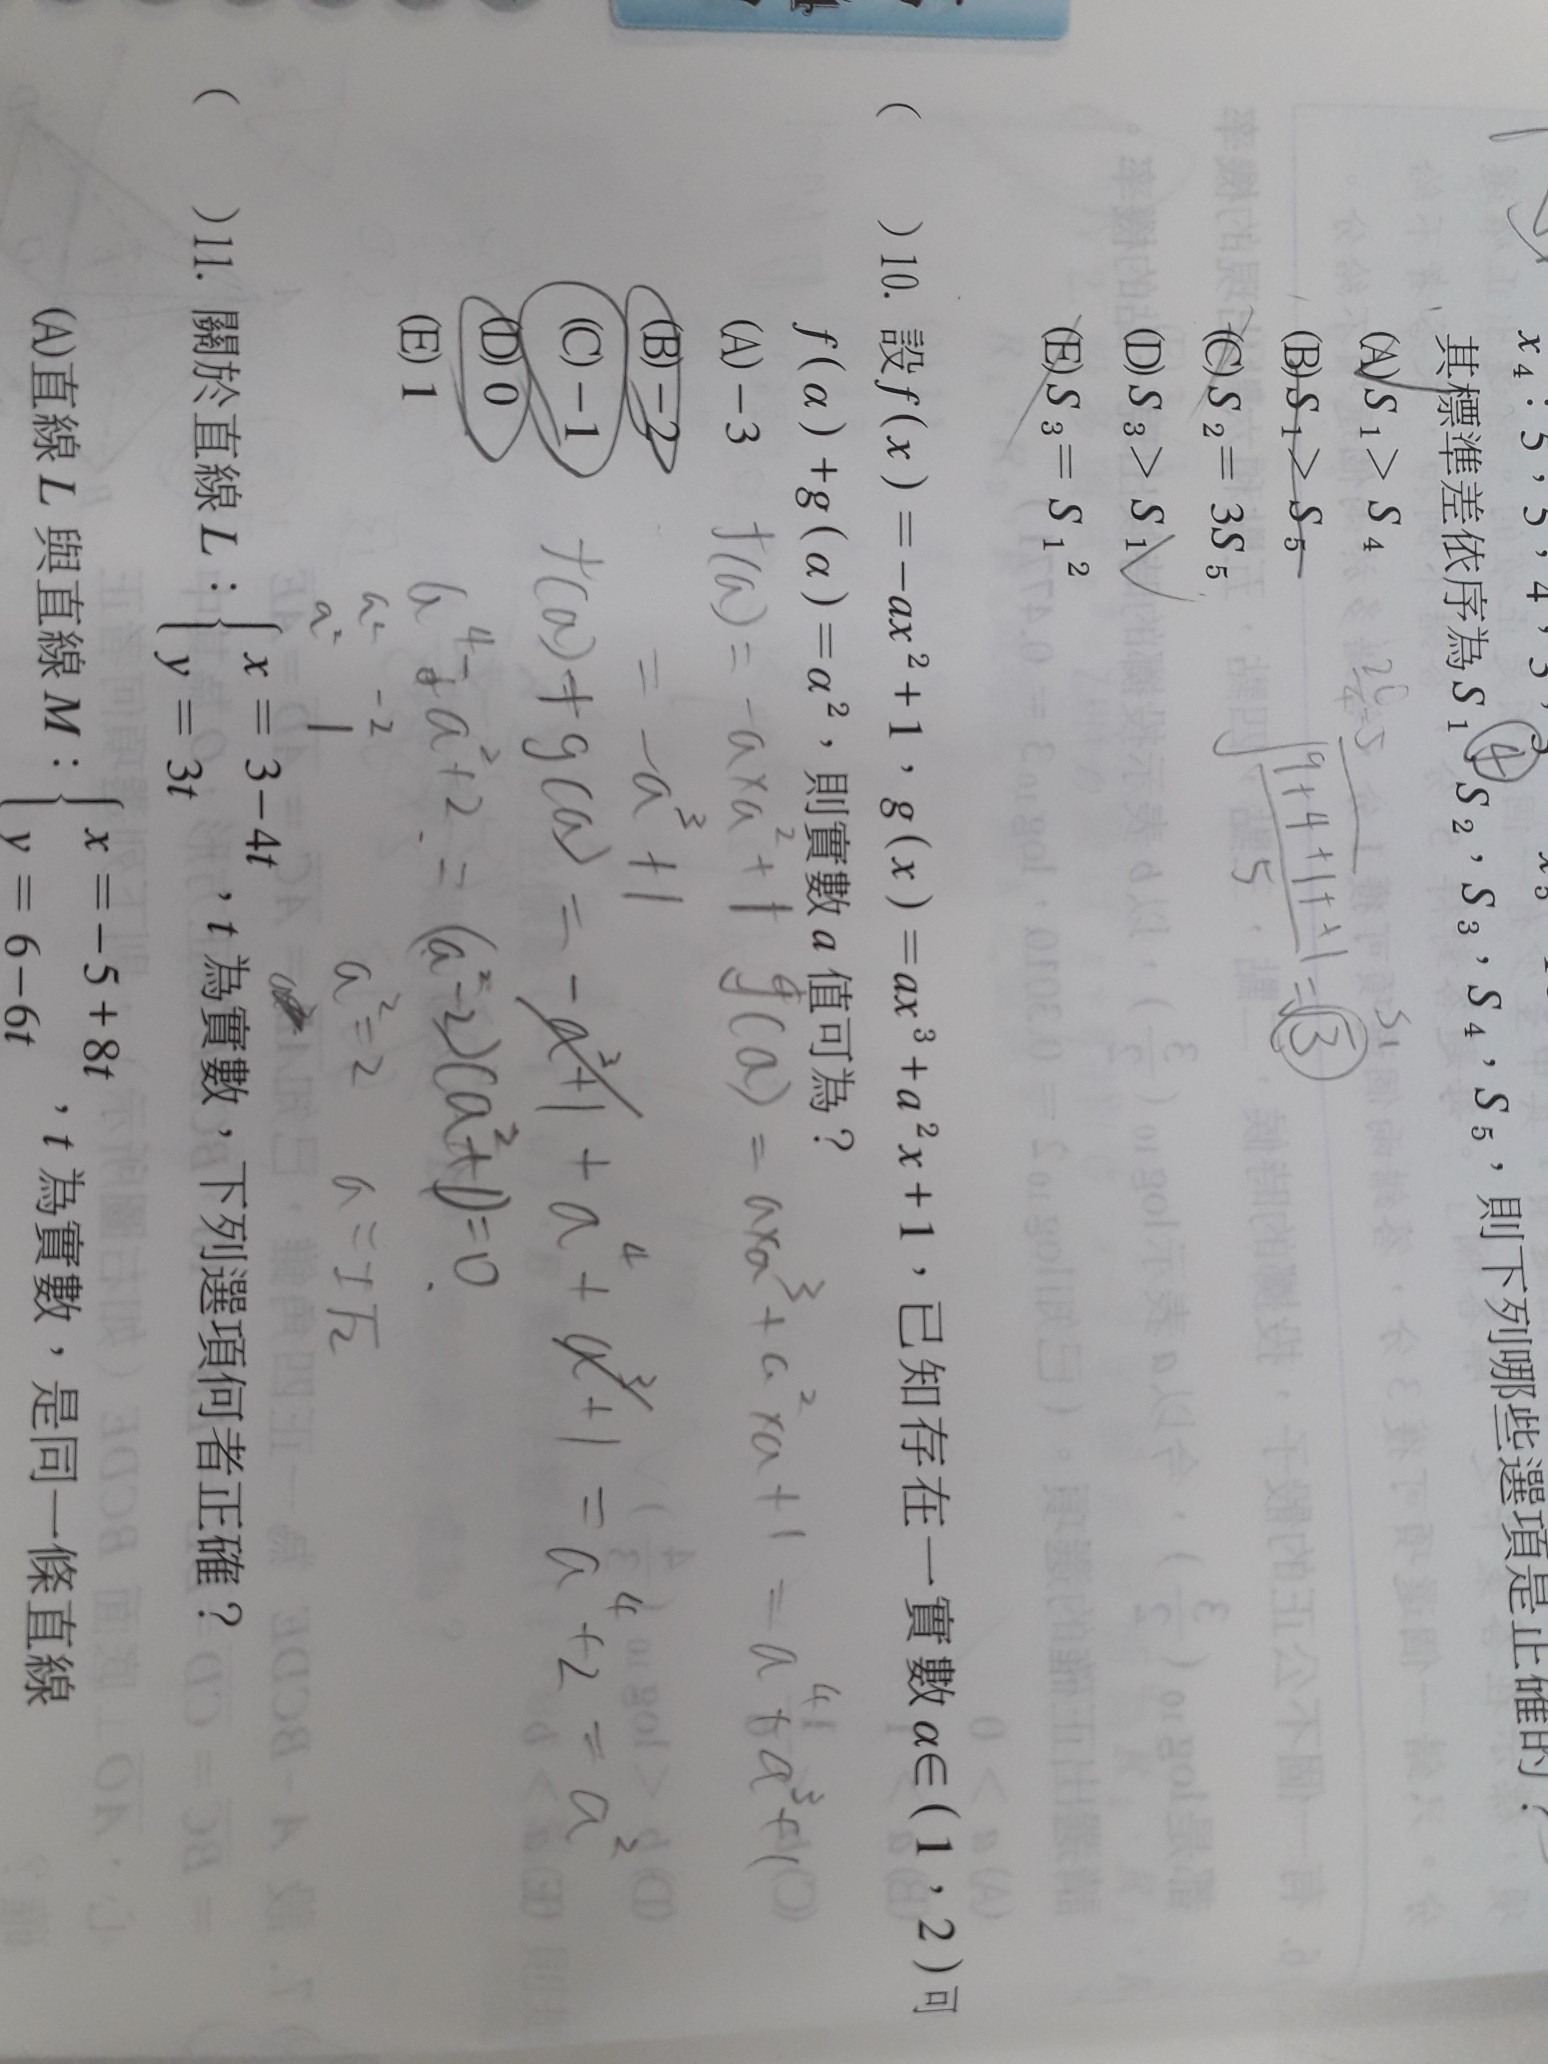 x₄：5，5，4，5，
其標準差依序為S₁，S₂，S₃，S₄，S₅，則下列哪些選項是正確的？
(A)S₁＞S₄
(B)S₁＞S₅
(C)S₂＝3S₅
(D)S₃＞S₁
(E)S₃＝S₁²
④
√(9+4+1+1)/5 = ③
( )10. 設f(x)＝－ax²＋1，g(x)＝ax³＋a²x＋1，已知存在一實數α∈(1，2)可
f(α)＋g(α)＝α²，則實數a值可為？
(A)－3
(B)－2
(C)－1
(D) 0
(E) 1
f(a) = -a×a²+1 g(a) = a×a³+a²×a+1 = a⁴+a³+1
= -a³+1
f(a)+g(a) = -a³+1+a⁴+a³+1 = a⁴+2 = a²
a⁴-a²+2 = (a²-2)(a²+1)=0
a² -2
a² 1
a²=2 a=±√2
( )11. 關於直線L：{x＝3－4t y＝3t，t為實數，下列選項何者正確？
(A)直線L與直線M：{x＝－5＋8t y＝6－6t，t為實數，是同一條直線